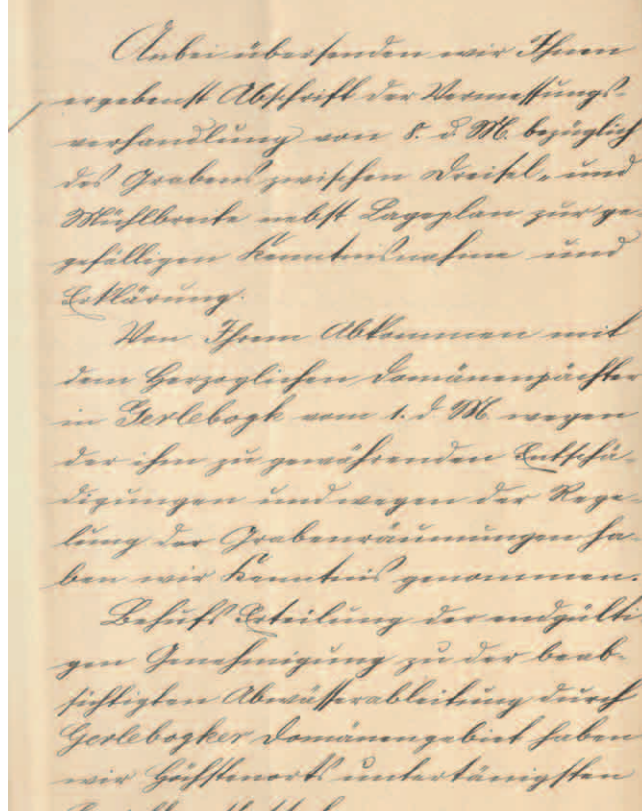 Anbei übersenden wir Ihnen
ergebenst Abschrift der Vermessungs-
verhandlung vom 8. d. M. bezüglich
des Grabens zwischen Dreisel- und
Mühlbreite nebst Lageplan zur ge-
gefälligen Kenntnisnahme und
Erklärung.
Von Ihrem Abkommen mit
dem Herzoglichen Domänenpächter
in Gerlebogk vom 1. d. M. wegen
der ihm zu gewährenden Entschä-
digungen und wegen der Rege-
lung der Grabenräumungen ha-
ben wir Kenntnis genommen.
Behufs Erteilung der endgülti-
gen Genehmigung zu der beab-
sichtigten Abwässerableitung durch
Gerlebogker Domänengebiet haben
wir Höchstenorts untertänigsten